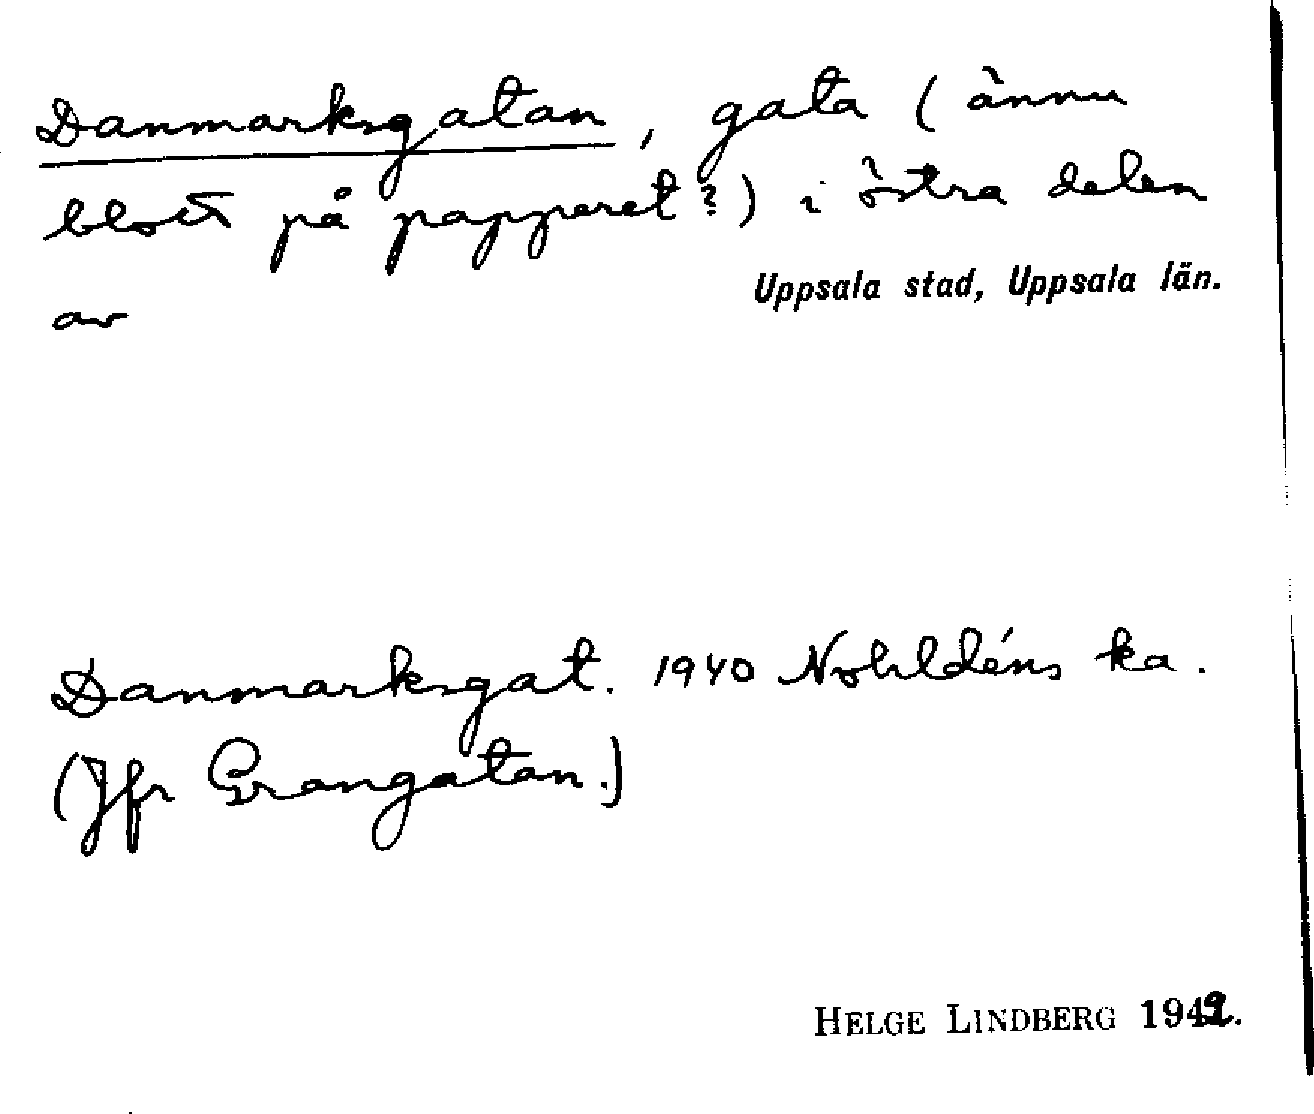 Danmarksgatan, gata (ännu
blott på papperet?) i östra delen
av Uppsala stad, Uppsala län.
Danmarksgat. 1940 Nohldéns ka.
(Jfr Grangatan.)
HELGE LINDBERG 1942.